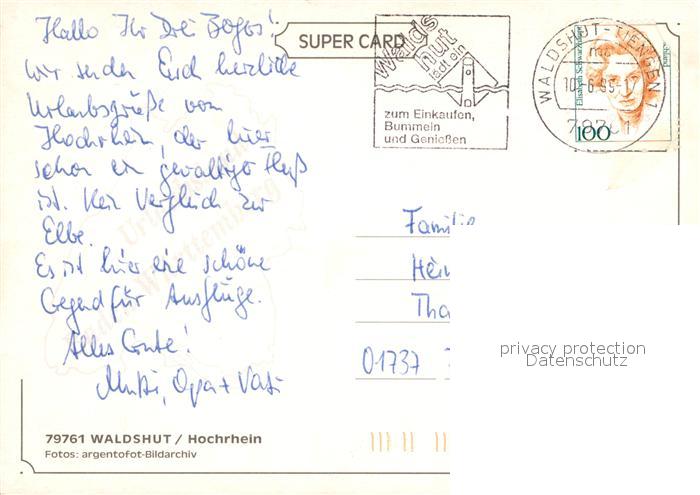 Hallo Ihr Drei Bogos!
wir senden Euch herzliche
Urlaubsgrüße vom
Hochrhein, der hier
schon ein gewaltiger Fluß
ist. Kein Vergleich zur
Elbe.
Es ist hier eine schöne
Gegend für Ausflüge.
Alles Gute!
Mutti, Opa + Vati
SUPER CARD
Waldshut
lädt ein
zum Einkaufen,
Bummeln
und Genießen
WALDSHUT-TIENGEN 1
79761
Elisabeth Schwarzhaupt
100
Urlaub in
Baden-Württemberg
Familie
Hein
Tha
01737
privacy protection
Datenschutz
79761 WALDSHUT / Hochrhein
Fotos: argentofot-Bildarchiv